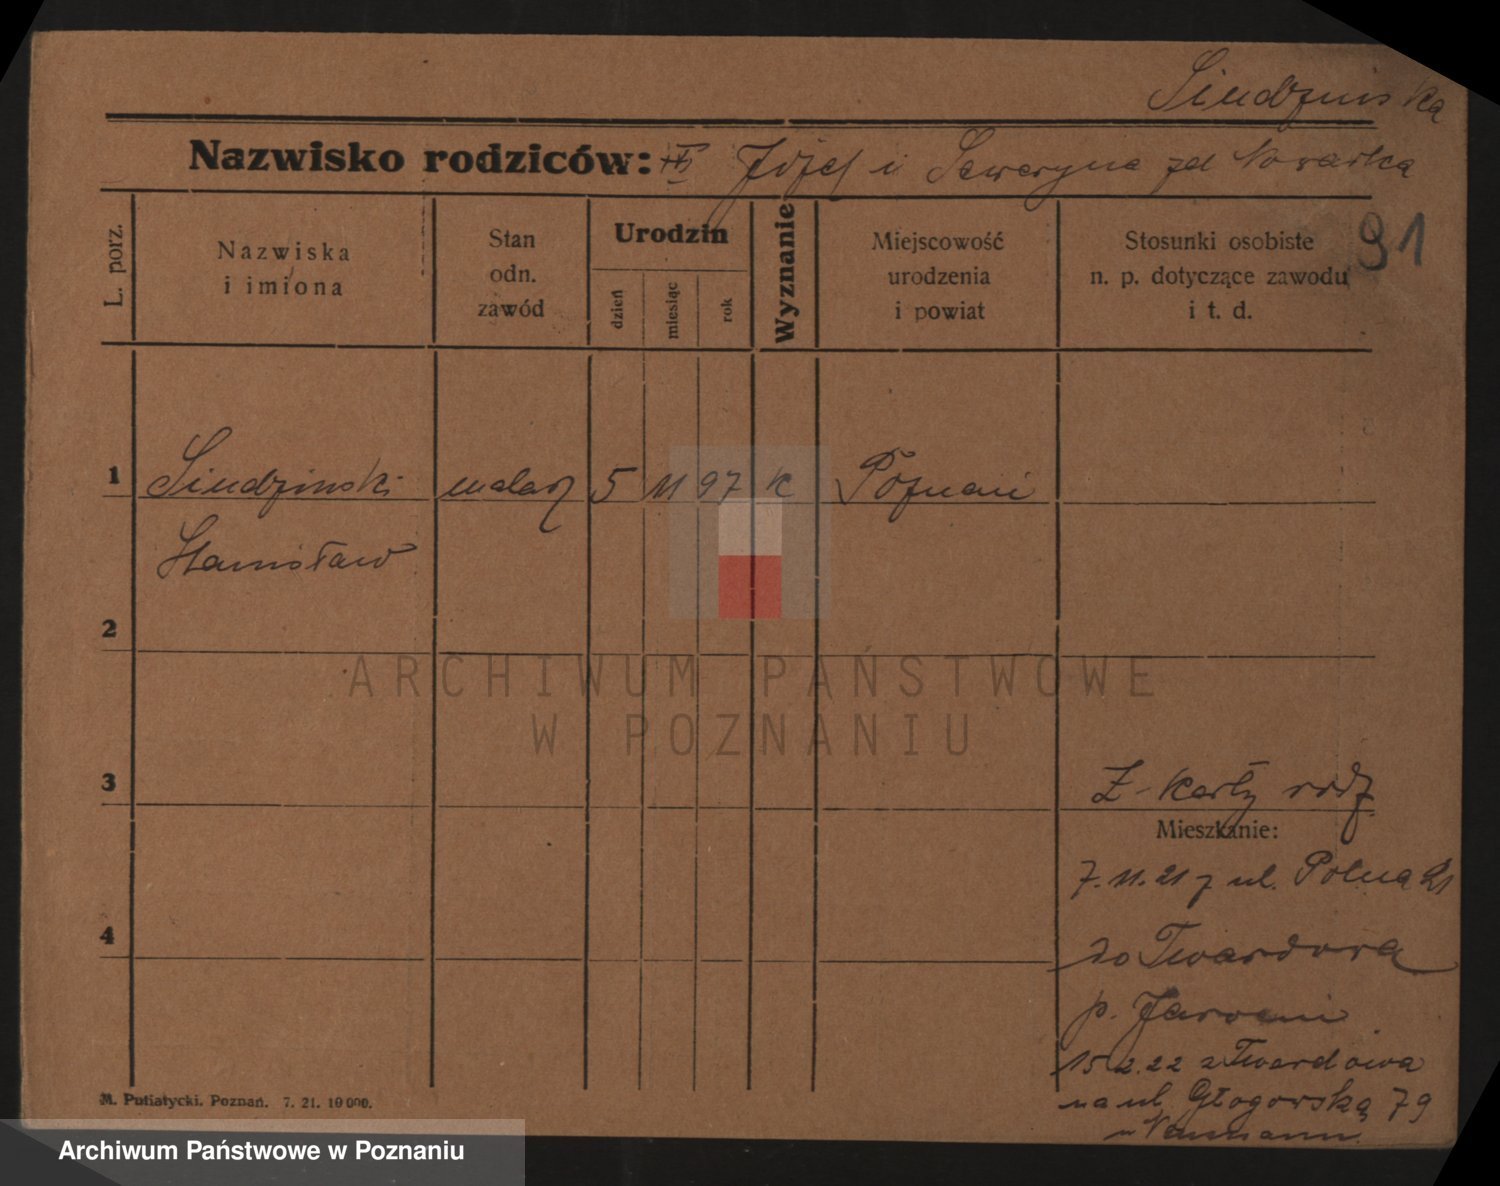 Siudzinska
Nazwisko rodziców: Józef i Seweryna zd Nowacka
91
L. porz.
Nazwiska
i imiona
Stan
odn.
zawód
Urodzin
dzień
miesiąc
rok
Wyznanie
Miejscowość
urodzenia
i powiat
Stosunki osobiste
n. p. dotyczące zawodu
i t. d.
1 Siudzinski malarz 5 11 97 k Poznań
Stanisław
2
3
Z karty rodz.
Mieszkanie:
7.11.21 z ul. Polna 21
4
do Twardowa
p. Jarocin
15.2.22 z Twardowa
na ul Głogowską 79
M. Putiatycki. Poznań. 7. 21. 10 000.
ARCHIWUM PAŃSTWOWE
W POZNANIU
Archiwum Państwowe w Poznaniu